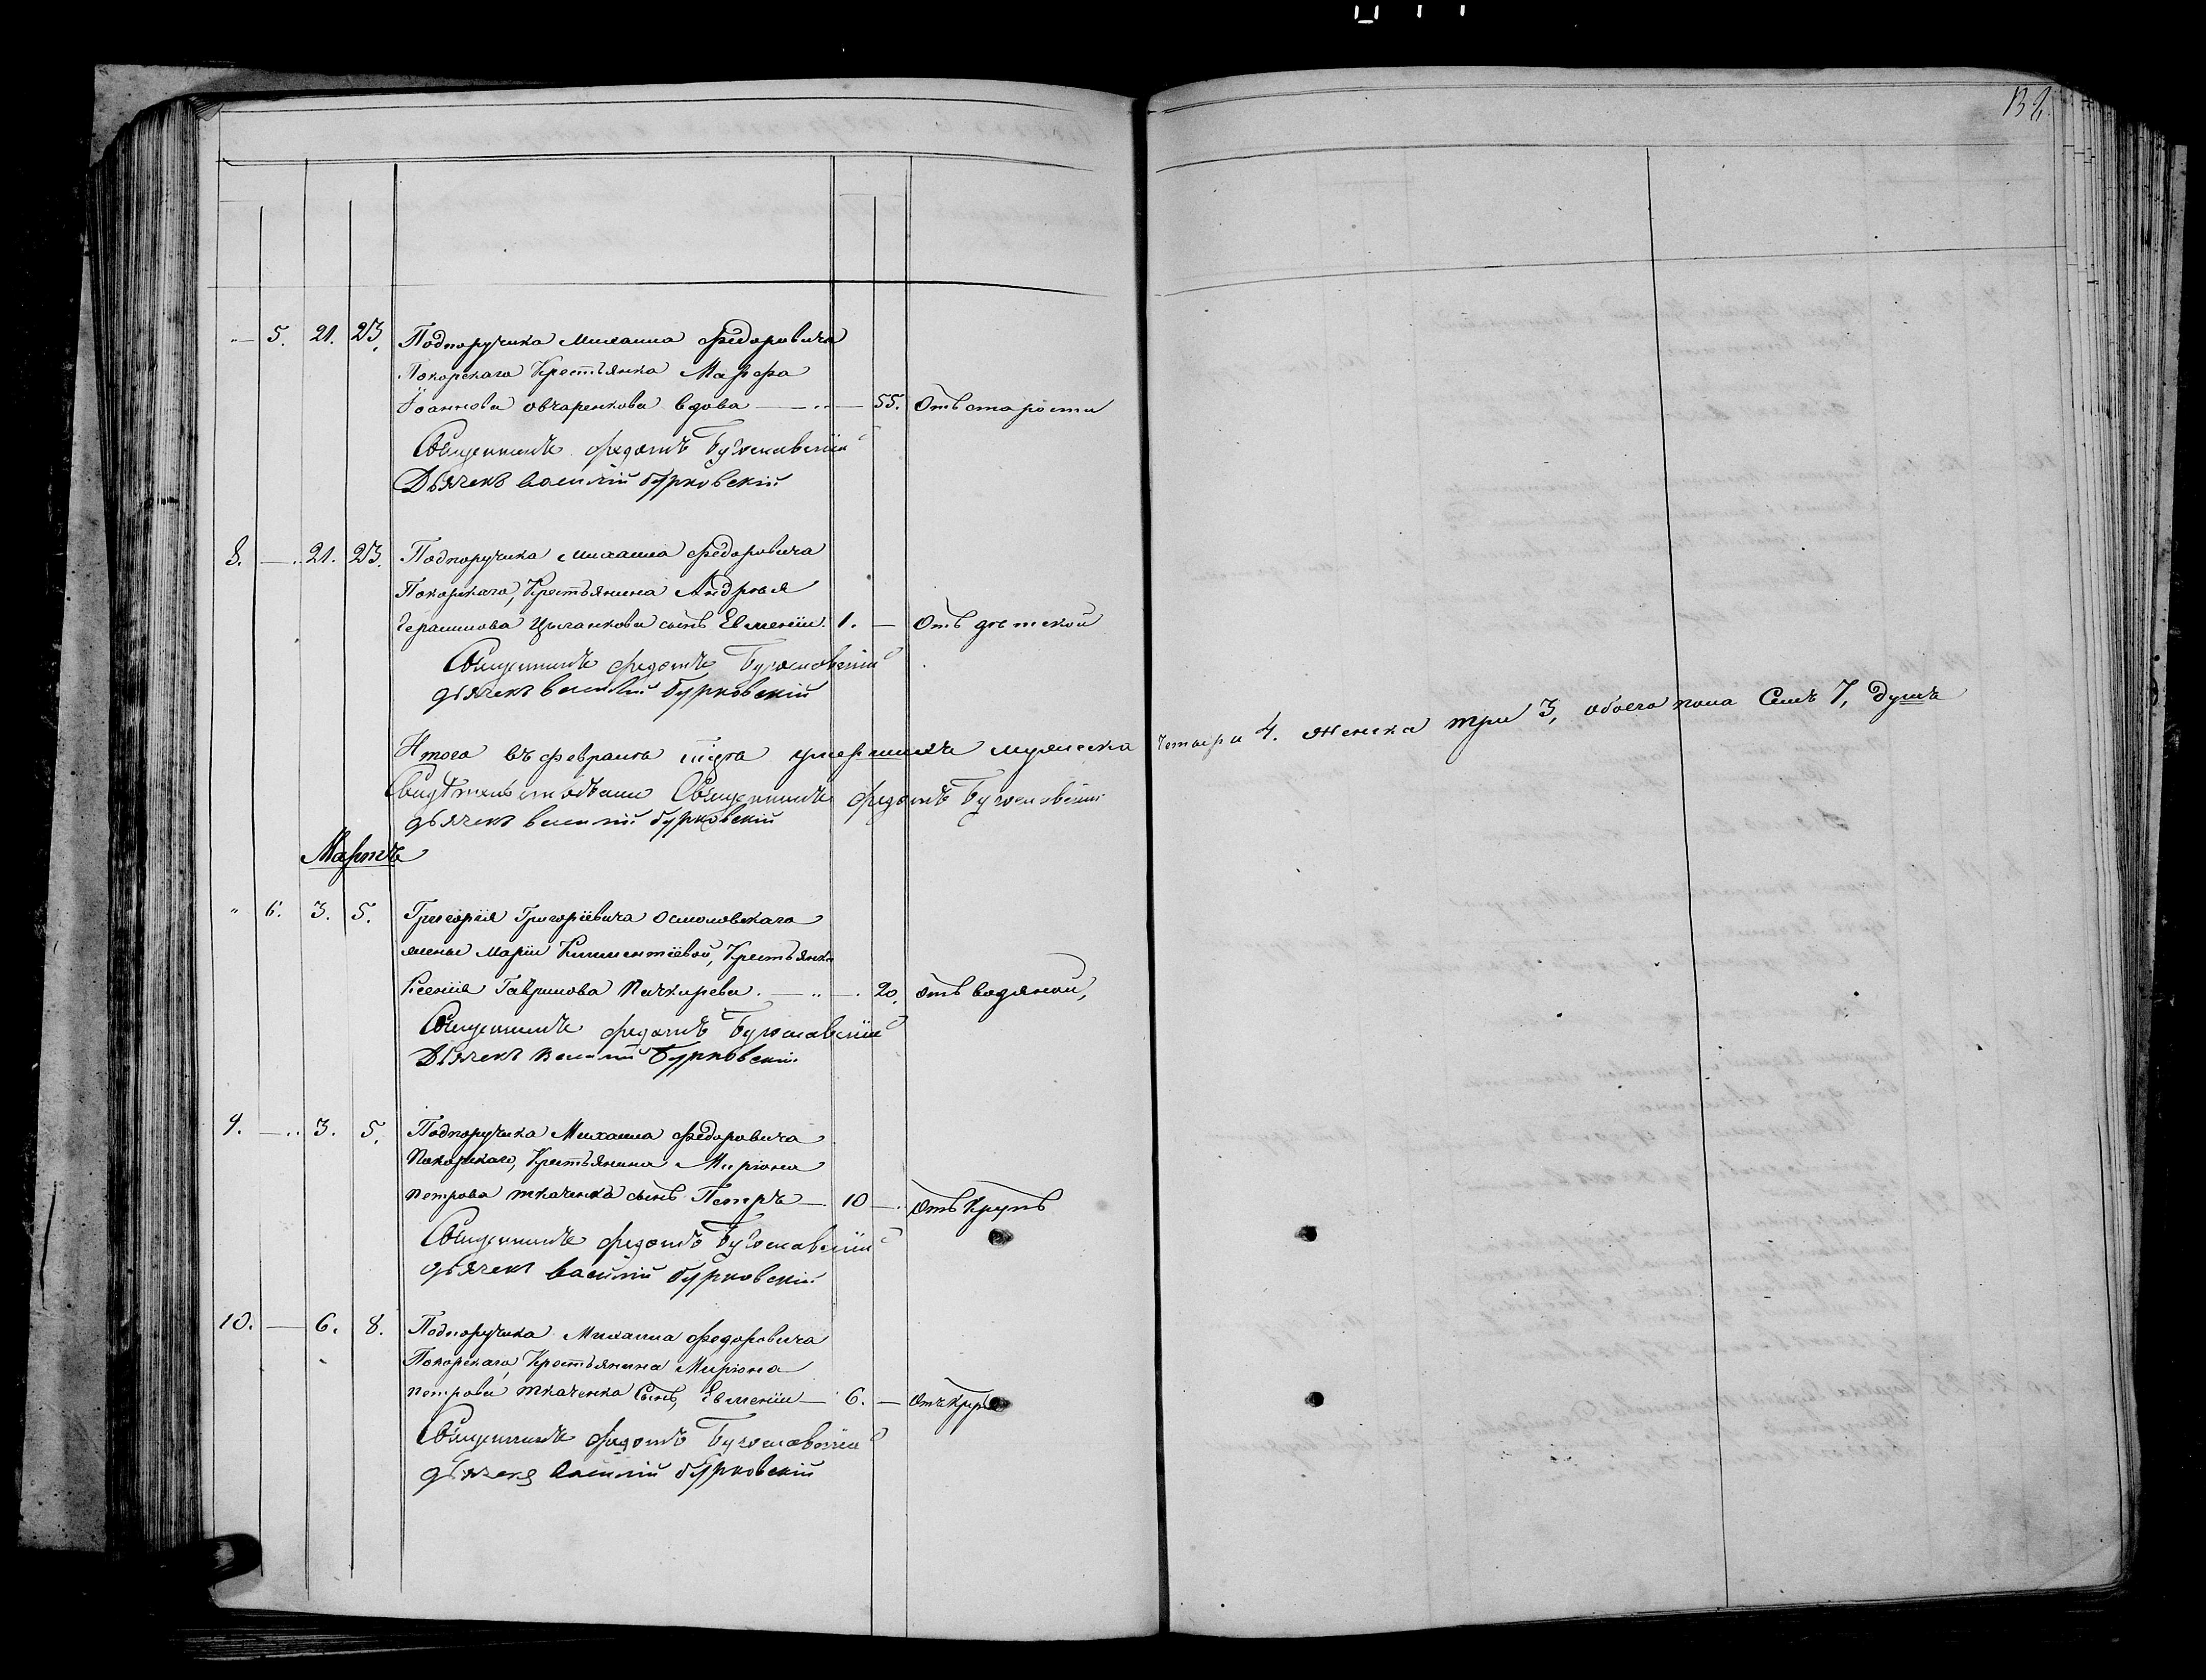 132.
" — 5. 21. 23. Подпоручика Михаила Федоровича
Покорскаго Крестьянка Марфа
Іоаннова Овчаренкова вдова — " — 55. Отъ старости
Священникъ Федотъ
Дьячекъ Василій Бурковскій
8. — " 21. 23. Подпоручика Михаила Федоровича
Покорскаго, Крестьянина Андрея
Герасимова Цыганкова сынъ Евменій. 1. — Отъ дѣтской
Священникъ Федотъ
дьячекъ Василій Бурковскій
Итого въ февралѣ умершихъ мужеска четыри 4. женска три 3, обоего пола Семъ 7, душъ
Священникъ Федотъ
дьячекъ Василій Бурковскій
Мартъ
" 6. 3. 5. Григорія Григоріевича Осмоловскаго
жены Маріи Климентіевой, Крестьянка
Ксенія Гаврилова — " — 20. отъ водяной,
Священникъ Федотъ
Дьячекъ Василій Бурковскій
9. — " 3. 5. Подпоручика Михаила Федоровича
Покорскаго, Крестьянина Миріона
Петрова Ткаченка сынъ Петръ — 10 — " Отъ Крупъ
Священникъ Федотъ
дьячекъ Василій Бурковскій
10. — 6. 8. Подпоручика Михаила Федоровича
Покорскаго, Крестьянина Миріона
Петрова Ткаченка Сынъ, Евменій — 6. —
Священникъ Федотъ
дьячекъ Василій Бурковскій